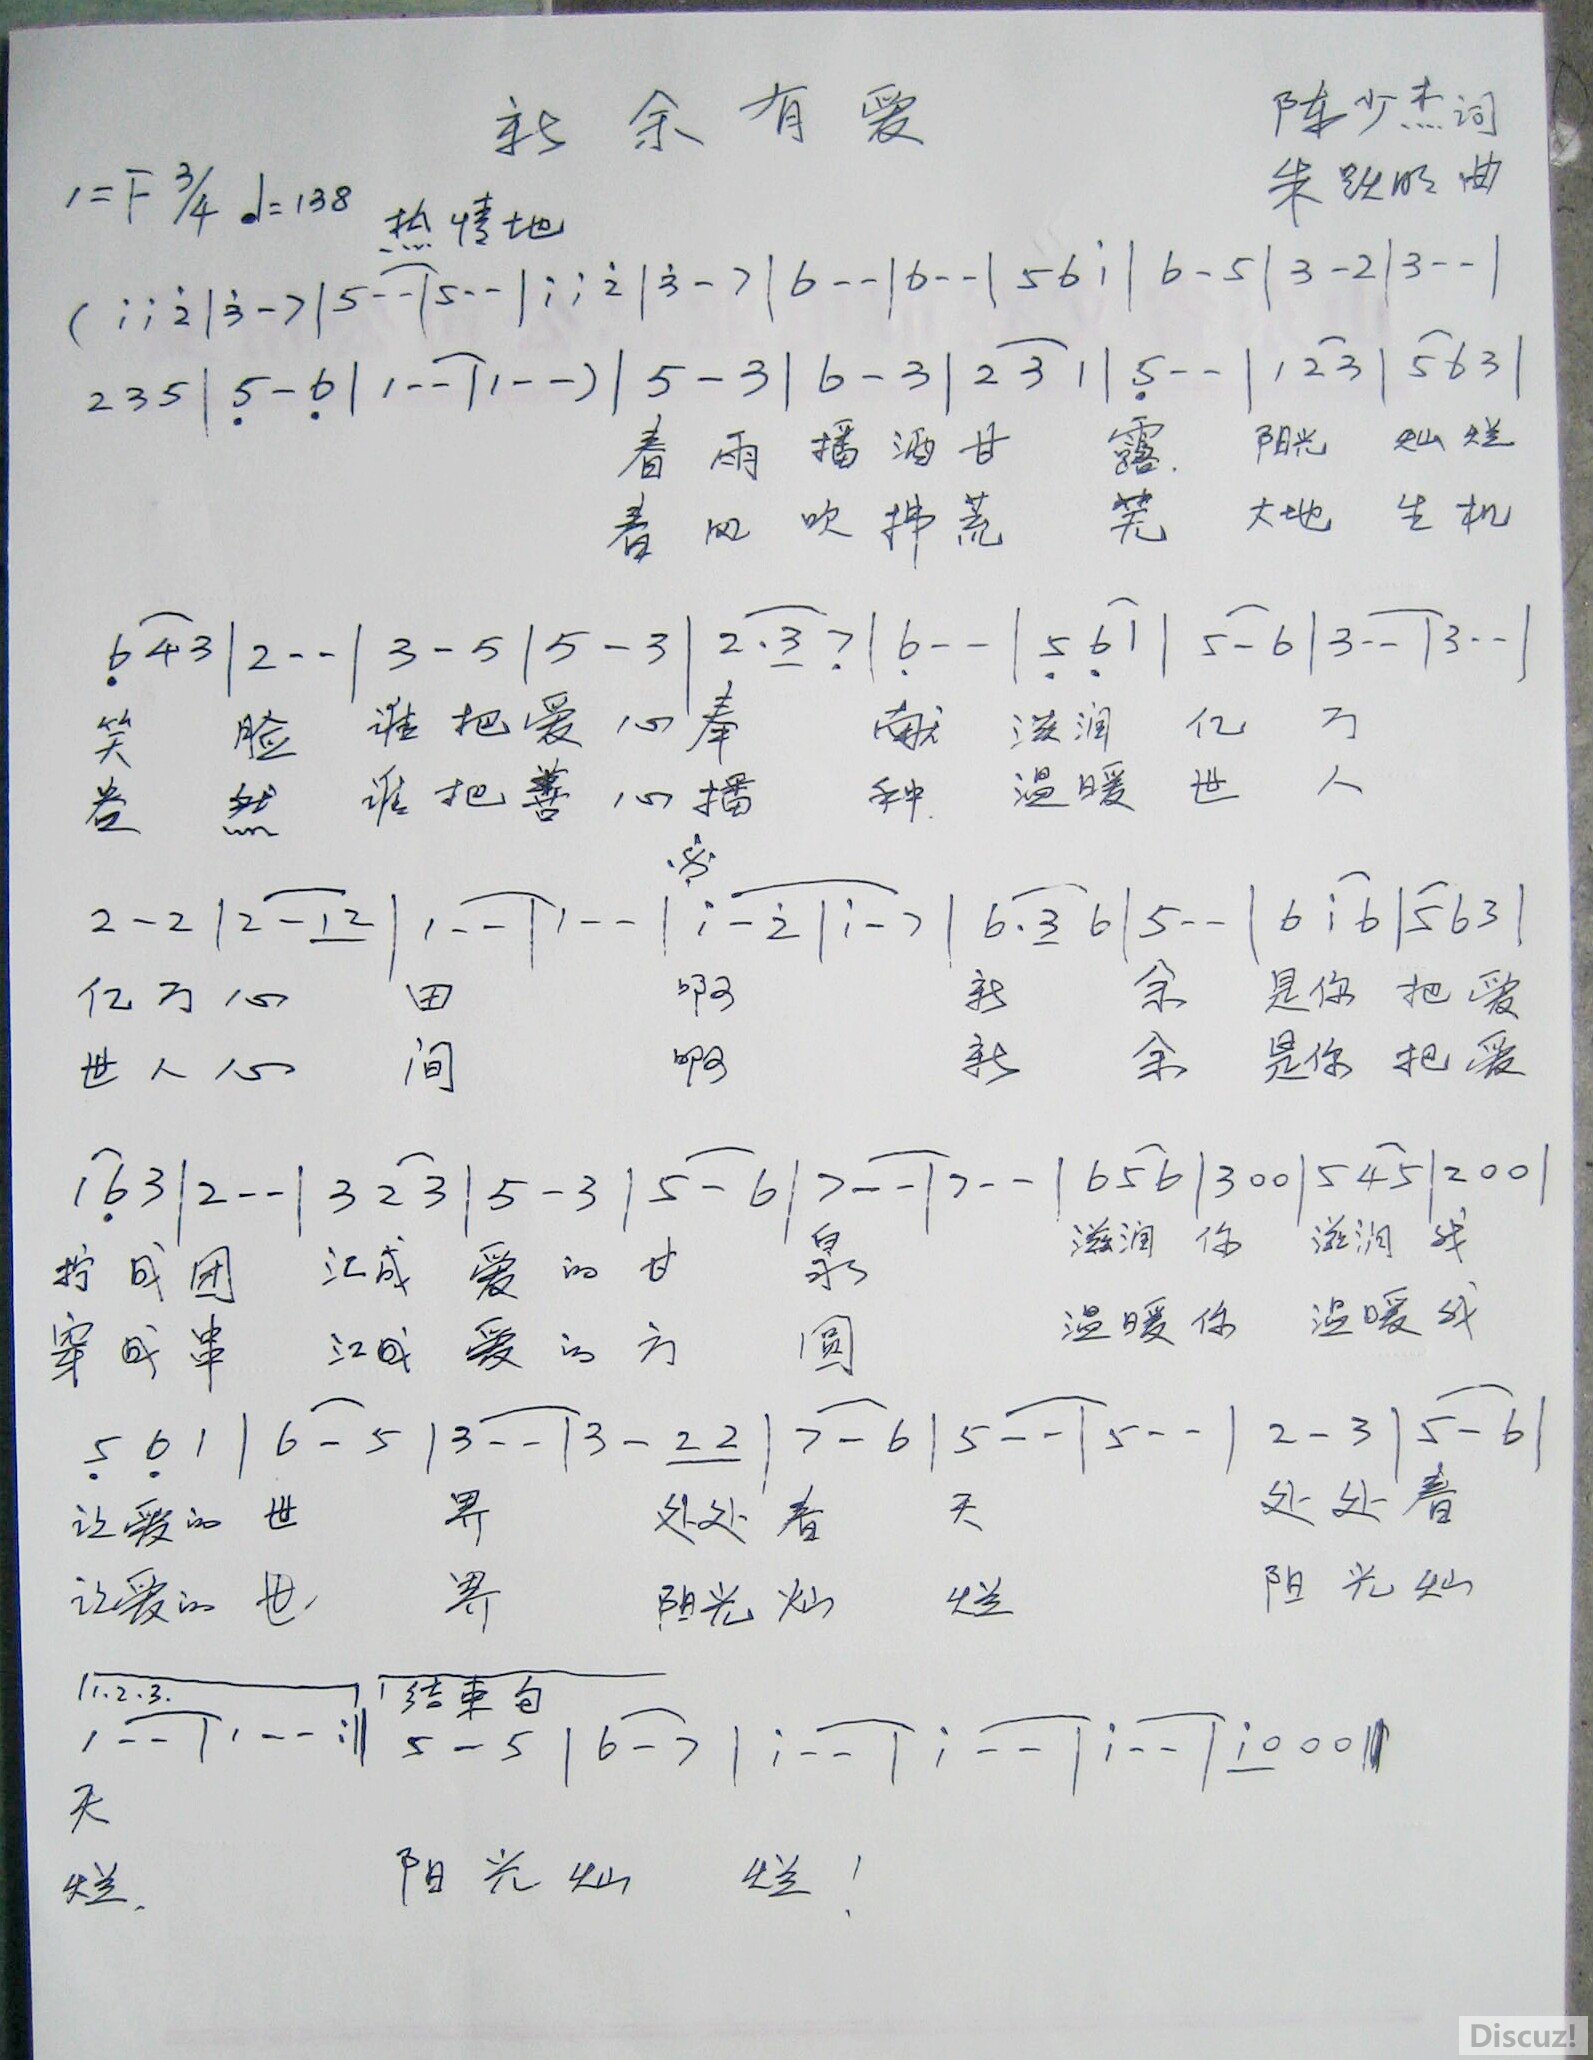 新余有爱
陈少杰词
朱跃明曲
1=F 3/4 ♩=138
热情地
( i i 2̇ | 3̇ - 7 | 5 - - | 5 - - | i i 2̇ | 3̇ - 7 | 6 - - | 6 - - | 5 6 i | 6 - 5 | 3 - 2 | 3 - - |
2 3 5 | 5̣ - 6̣ | 1 - - | 1 - - ) | 5 - 3 | 6 - 3 | 2 3 1 | 5̣ - - | 1 2 3 | 5 6 3 |
春雨播洒甘露 阳光灿烂
春风吹拂荒芜 大地生机
6̣ 4 3 | 2 - - | 3 - 5 | 5 - 3 | 2 · 3 7̣ | 6̣ - - | 5̣ 6̣ 1 | 5 - 6 | 3 - - | 3 - - |
笑脸 谁把爱心奉献 滋润亿万
盎然 谁把善心播种 温暖世人
2 - 2 | 2 - 1 2 | 1 - - | 1 - - | i - 2̇ | i - 7 | 6 · 3 6 | 5 - - | 6 i 6 | 5 6 3 |
亿万心田 啊 新余 是你把爱
世人心间 啊 新余 是你把爱
1 6̣ 3 | 2 - - | 3 2 3 | 5 - 3 | 5 - 6 | 7 - - | 7 - - | 6 5 6 | 3 0 0 | 5 4 5 | 2 0 0 |
拧成团 汇成爱的甘泉 滋润你 滋润我
穿成串 汇成爱的方圆 温暖你 温暖我
5̣ 6̣ 1 | 6 - 5 | 3 - - | 3 - 2 2 | 7 - 6 | 5 - - | 5 - - | 2 - 3 | 5 - 6 |
让爱的世界 处处春天 处处春
让爱的世界 阳光灿烂 阳光灿
1.2.3. 结束句
1 - - | 1 - - :‖ 5 - 5 | 6 - 7 | i - - | i - - | i - - | i 0 0 0 ‖
天
烂. 阳光灿烂!
Discuz!